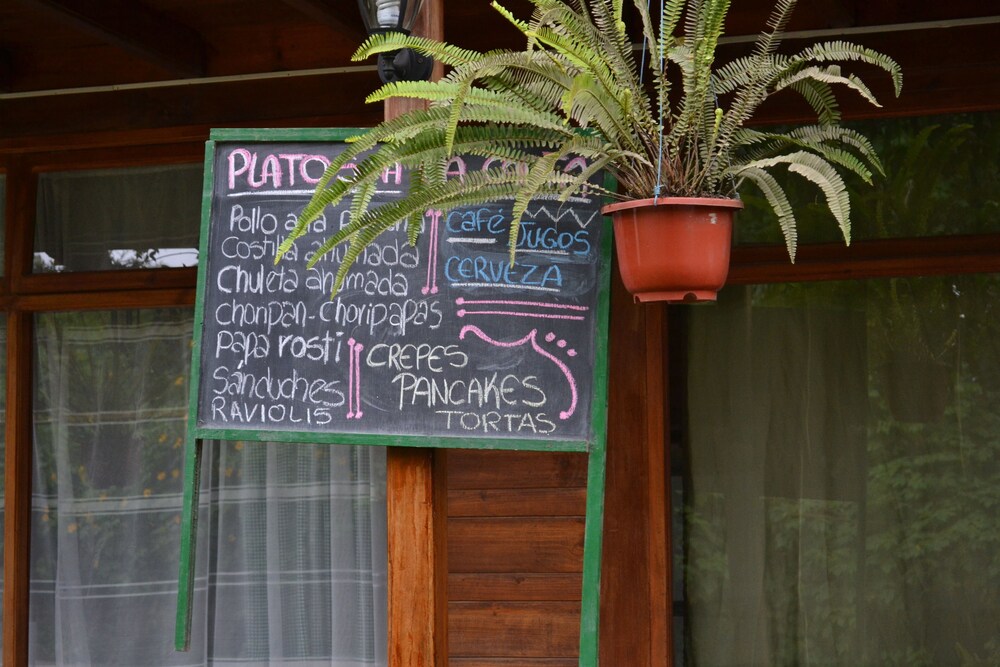 PLATOS A LA CARTA
Pollo a la
Costilla ahumada
Chuleta ahumada
chonpan-choripapas
papa rosti
Sánduches
RAVIOLIS
café JUGOS
CERVEZA
CREPES
PANCAKES
TORTAS